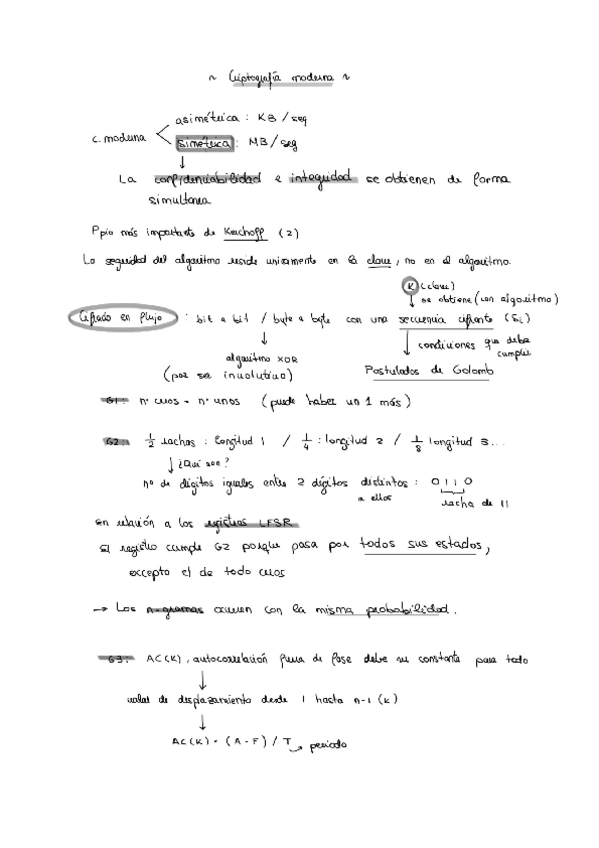 ~ Criptografía moderna ~
asimétrica : KB / seg
c. moderna
simétrica : MB / seg
La confidencialidad e integridad se obtienen de forma
simultanea
Ppio más importante de Kerchoff (2)
La seguridad del algoritmo reside unicamente en la clave, no en el algoritmo.
K (clave)
se obtiene (con algoritmo)
Cifrado en flujo : bit a bit / byte a byte con una secuencia cifrante (Si)
condiciones que debe
cumplir
algoritmo XOR
(por ser involutivo)
Postulados de Golomb
G1: nº ceros = nº unos (puede haber un 1 más)
G2: 1/2 rachas : longitud 1 / 1/4 : longitud 2 / 1/8 longitud 3...
¿Qué son?
nº de dígitos iguales entre 2 dígitos distintos : 0 1 1 0
a ellos
racha de 11
en relación a los registros LFSR
El registro cumple G2 porque pasa por todos sus estados,
excepto el de todo ceros
→ Los n-gramas ocurren con la misma probabilidad.
G3: AC(K), autocorrelación fuera de fase debe ser constante para todo
valor de desplazamiento desde 1 hasta n-1 (k)
AC(K) = (A - F) / T → periodo